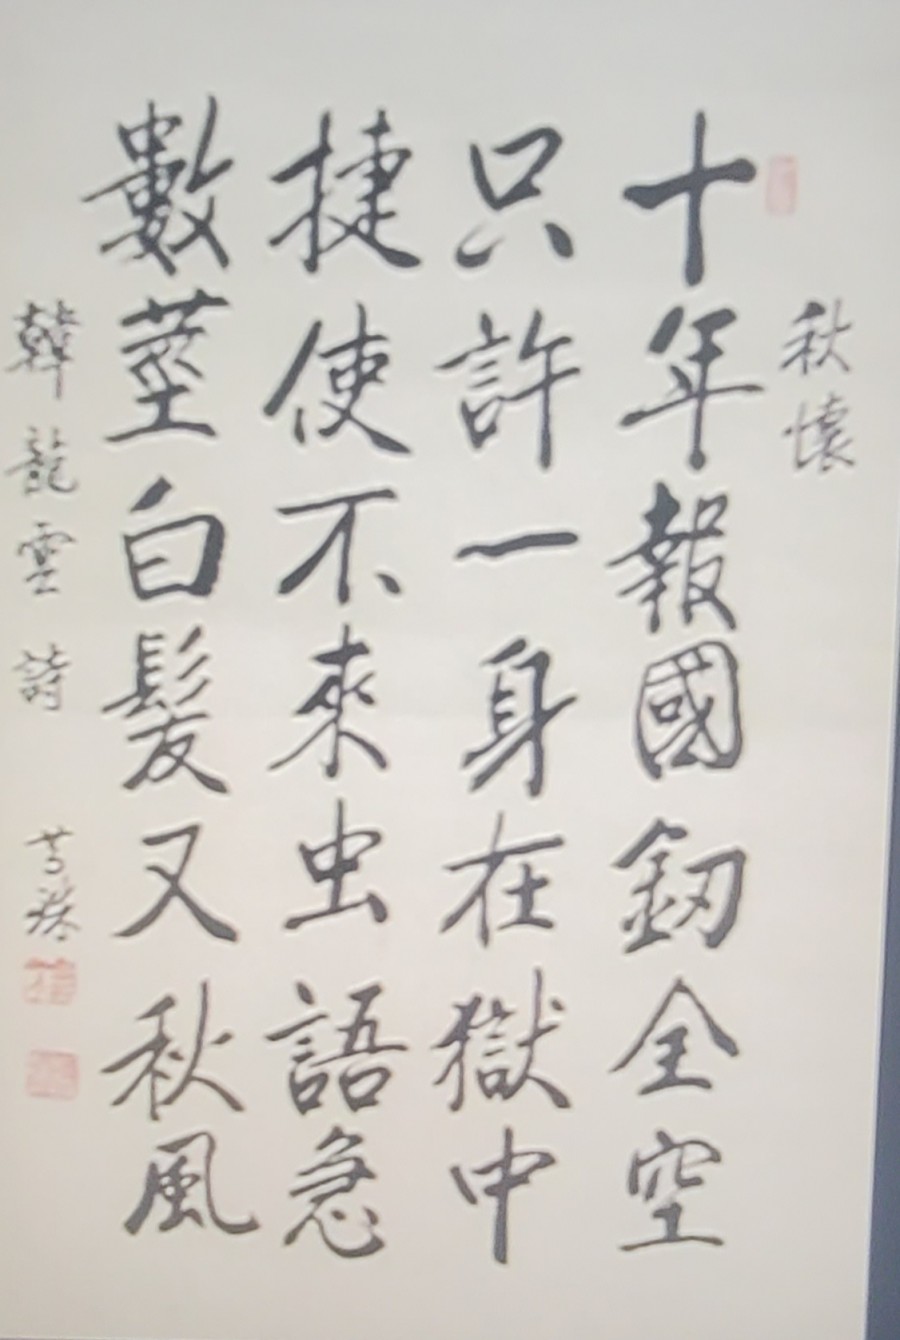 秋懷
十年報國釼全空
只許一身在獄中
捷使不來虫語急
數莖白髮又秋風
韓龍雲詩